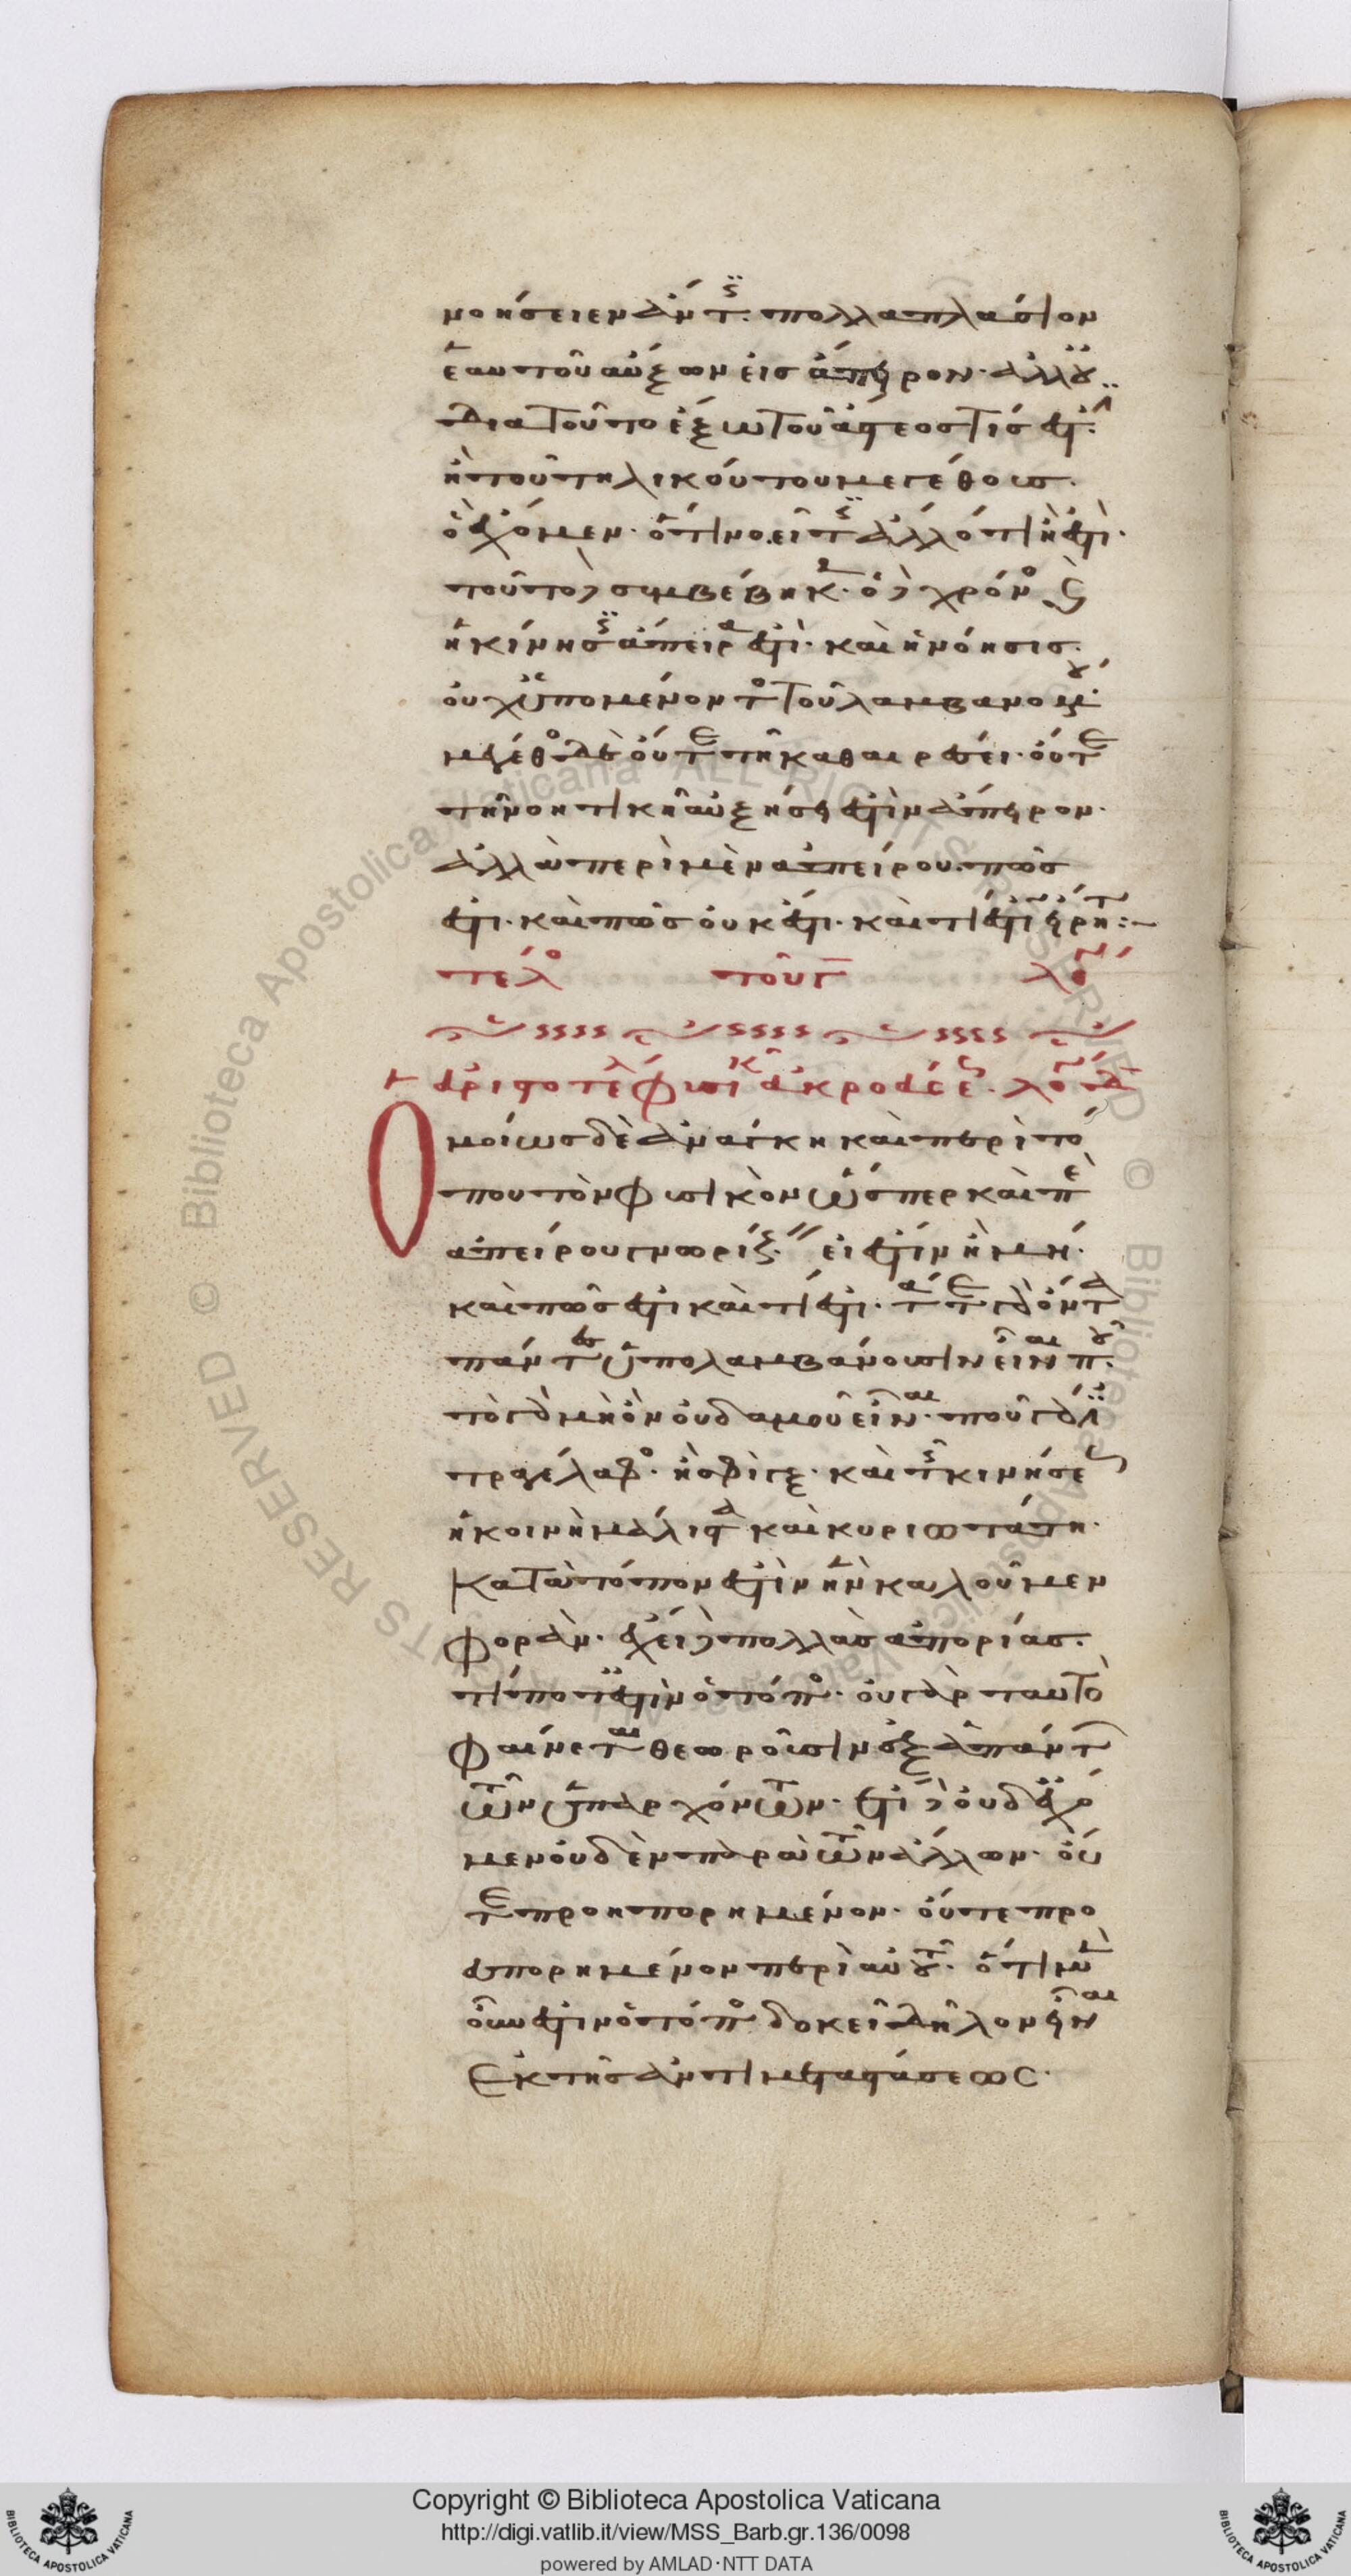 νοήσειεν ἄν τις πολλαπλάσιον
ἑαυτοῦ αὔξων εἰς ἄπειρον· ἀλλ' οὐ
διὰ τοῦτο ἔξω τοῦ ἄστεός τίς ἐστιν
ἢ τοῦ τηλικούτου μεγέθους.
ὃ ἔχομεν· ὅτι νοεῖ τις ἀλλ' ὅτι ἔστι·
τοῦτο δὲ συμβέβηκε· ὁ δὲ χρόνος καὶ
ἡ κίνησις ἄπειρά ἐστι· καὶ ἡ νόησις.
οὐχ ὑπομένοντος τοῦ λαμβανομένου·
μέγεθος δὲ οὔτε τῇ καθαιρέσει· οὔτε
τῇ νοητικῇ αὐξήσει ἐστὶν ἄπειρον·
ἀλλὰ περὶ μὲν ἀπείρου· πῶς
ἔστι· καὶ πῶς οὐκ ἔστι· καὶ τί ἐστιν εἴρηται:–
τέλος τοῦ γ λόγου
ἀριστοτέλους φυσικῆς ἀκροάσεως· λόγος δ
Ὁμοίως δὲ ἀνάγκη καὶ περὶ τό
που τὸν φυσικὸν ὥσπερ καὶ περὶ
ἀπείρου γνωρίζειν εἰ ἔστιν ἢ μή·
καὶ πῶς ἔστι καὶ τί ἐστι· τά τε γὰρ ὄντα
πάντες ὑπολαμβάνουσιν εἶναί που·
τὸ γὰρ μὴ ὂν οὐδαμοῦ εἶναι· ποῦ γάρ ἐστι
τραγέλαφος· ἢ σφίγξ· καὶ τῆς κινήσεως
ἡ κοινὴ μάλιστα καὶ κυριωτάτη·
κατὰ τόπον ἐστὶν ἣν καλοῦμεν
φοράν· ἔχει δὲ πολλὰς ἀπορίας·
τί ποτέ ἐστιν ὁ τόπος· οὐ γὰρ ταυτὸ
φαίνεται θεωροῦσιν ἐξ ἁπάντ
ων τῶν ὑπαρχόντων· ἔτι δὲ οὐδ' ἔχο
μεν οὐδὲν παρὰ τῶν ἄλλων· οὔ
τε προηπορημένον· οὔτε προ
απορημένον περὶ αὐτοῦ· ὅτι μὲν
οὖν ἔστιν ὁ τόπος δοκεῖ δῆλον εἶναι
ἐκ τῆς ἀντιμεταστάσεως·
Copyright © Biblioteca Apostolica Vaticana
http://digi.vatlib.it/view/MSS_Barb.gr.136/0098
powered by AMLAD·NTT DATA